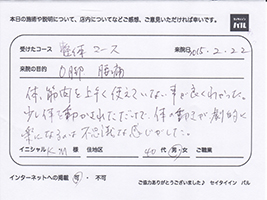 本日の施術や説明について、店内についてなどご感想、ご意見いただければ幸いです。
セイタイイン
パル
受けたコース 整体 コース 来院日 2015.2.22
来院の目的 O脚 腰痛
体、筋肉を上手く使えていない事が良くわかった。
少し体を動かされただけで、体の動きが劇的に
楽になるのは不思議な感じがした。
イニシャル K.M 住地区 40代 男・女 ご職業
インターネットへの掲載 可・不可
ご協力ありがとうございました♪ セイタイイン パル